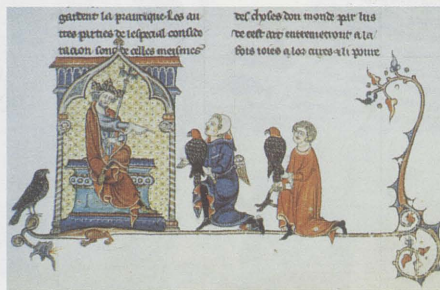 gardent la pratique. Les au
tres parties de lespecial conside
racion sont de celles meismes
des choses dou monde par lus
de cest art entremetront a la
fois ioies a lor cures. &li poure